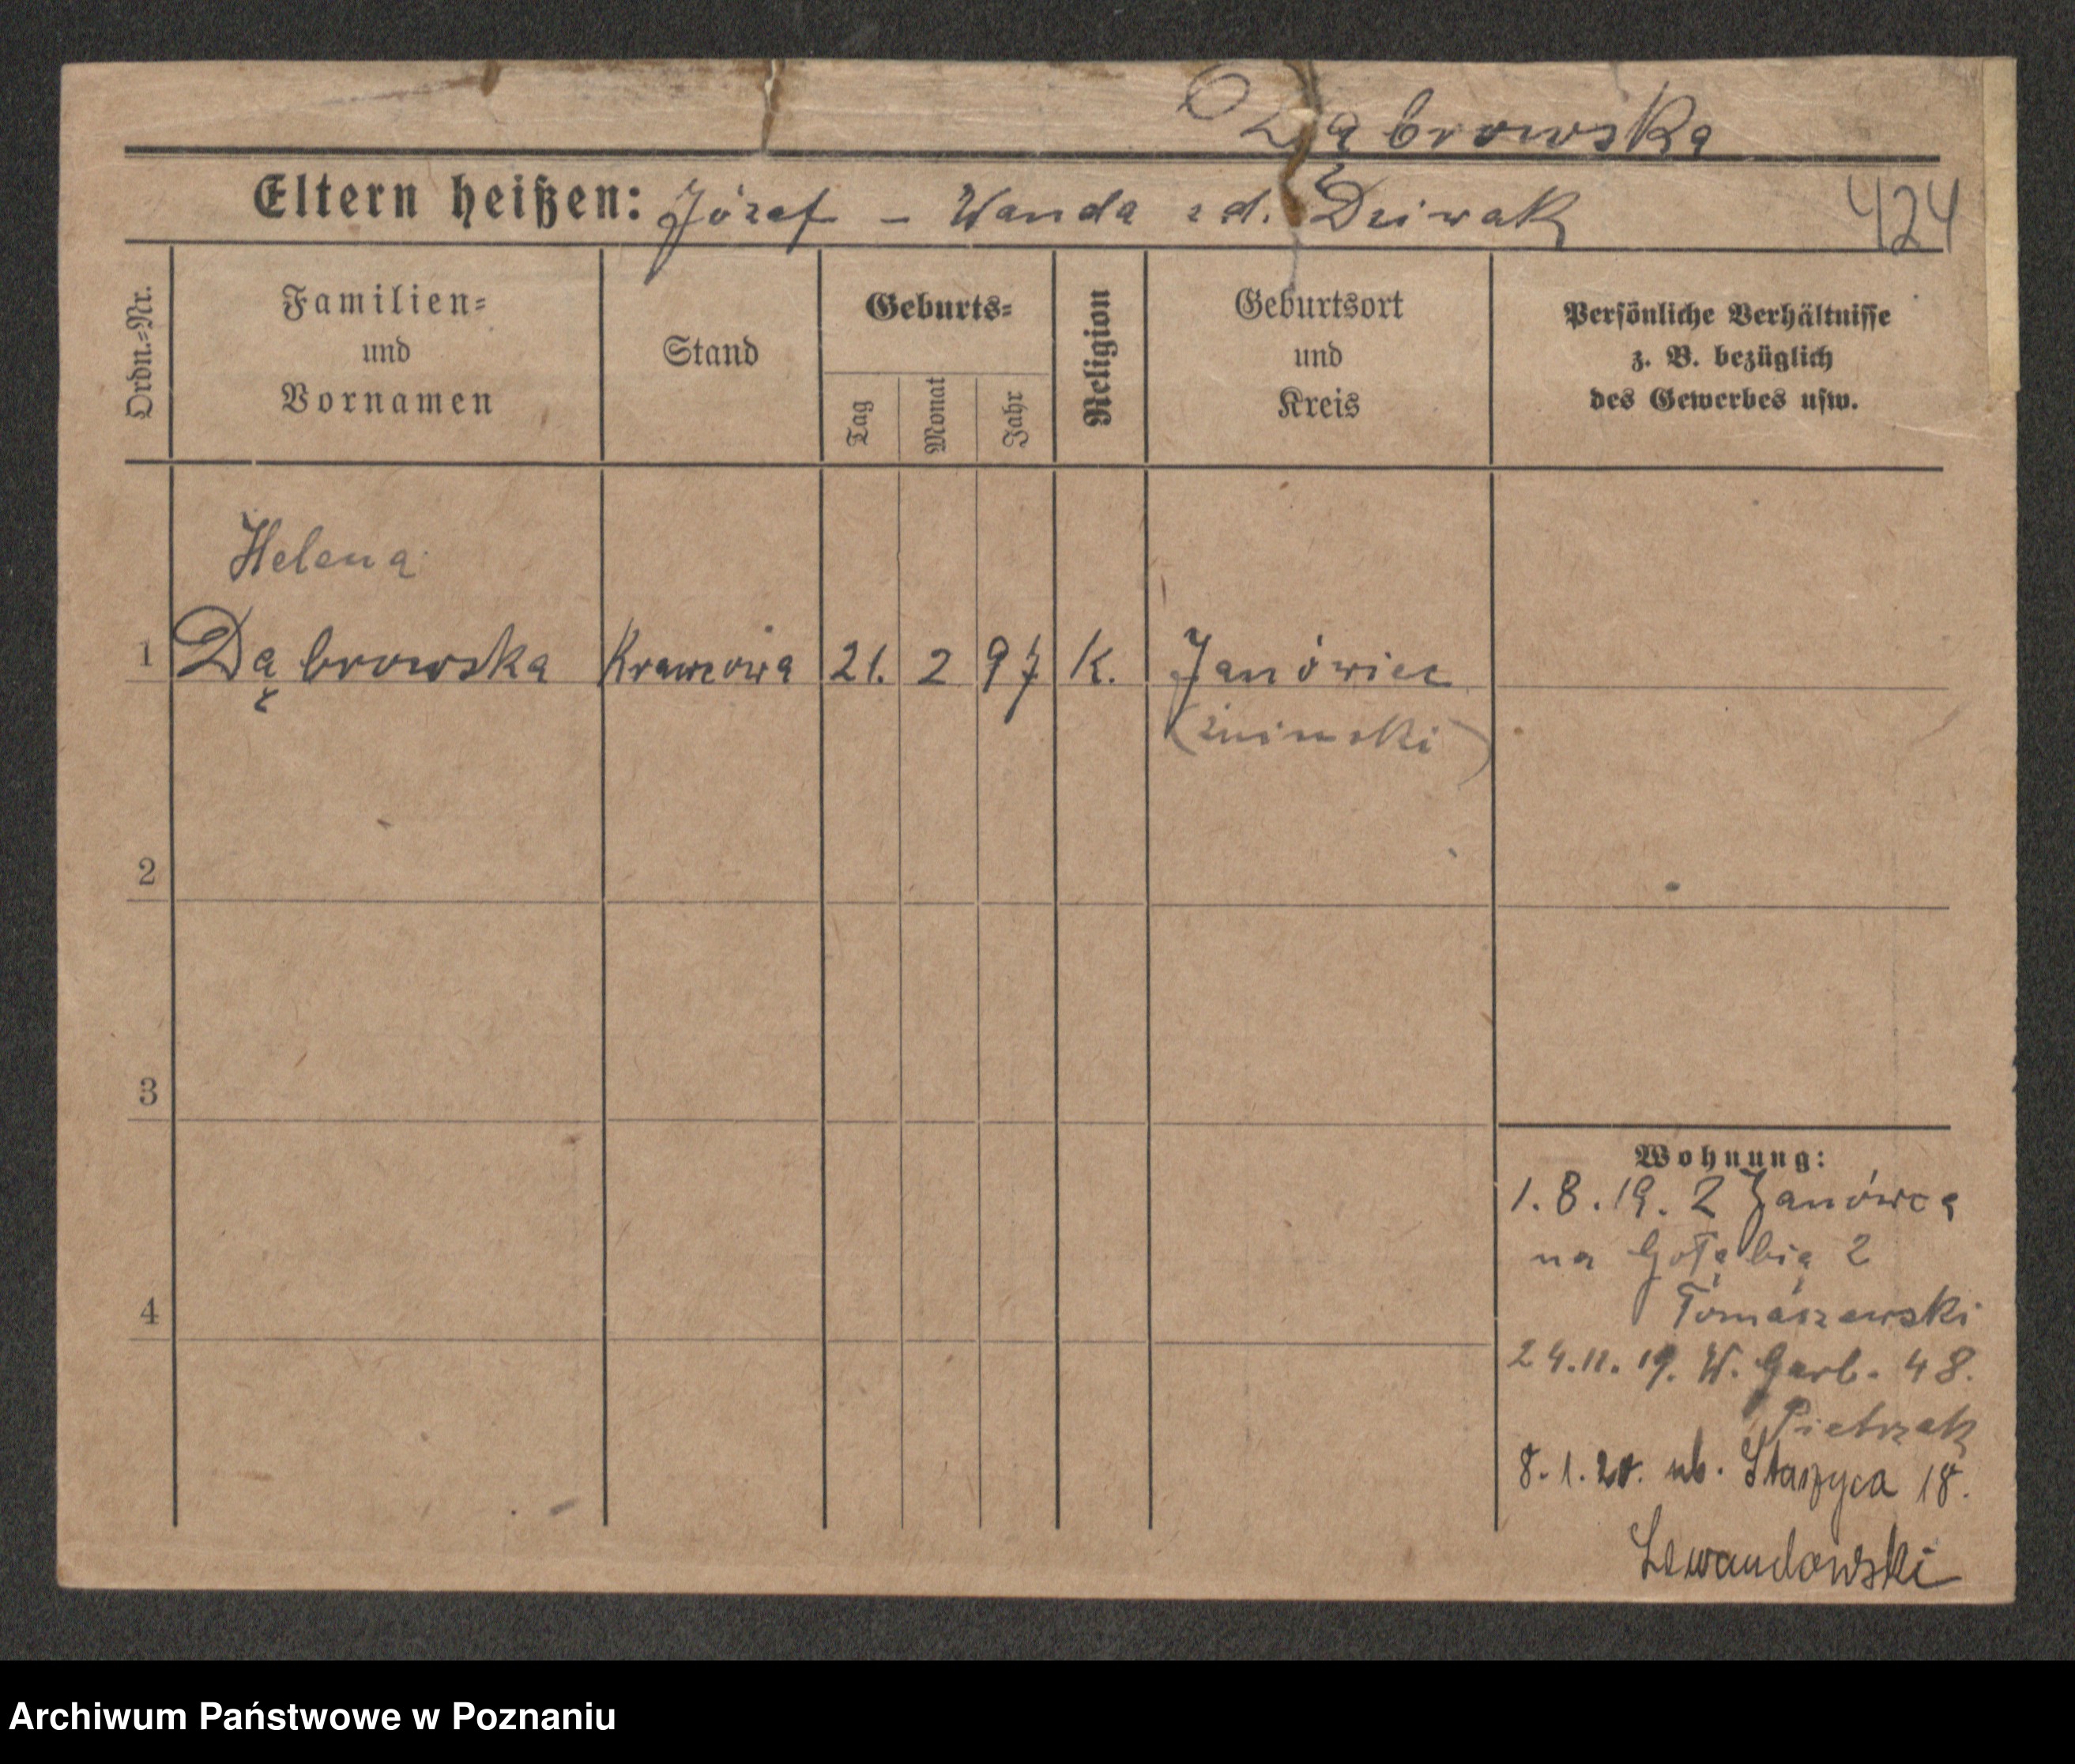 Dąbrowska
Eltern heißen: Józef – Wanda zd. Dziwak
424
Ordn.=Nr.
Familien=
und
Vornamen
Stand
Geburts=
Tag
Monat
Jahr
Religion
Geburtsort
und
Kreis
Persönliche Verhältnisse
z. B. bezüglich
des Gewerbes usw.
Helena
1 Dąbrowska Krawcowa 21. 2 97 K. Janówiec
(żniński)
2
3
4
Wohnung:
1.8.19. Z Janówca
na Gołębią 2
Tomaszewski
24.11.19. W. Garb. 48.
Pietrzak
8.1.20. ub. Staszyca 18.
Lewandowski
Archiwum Państwowe w Poznaniu